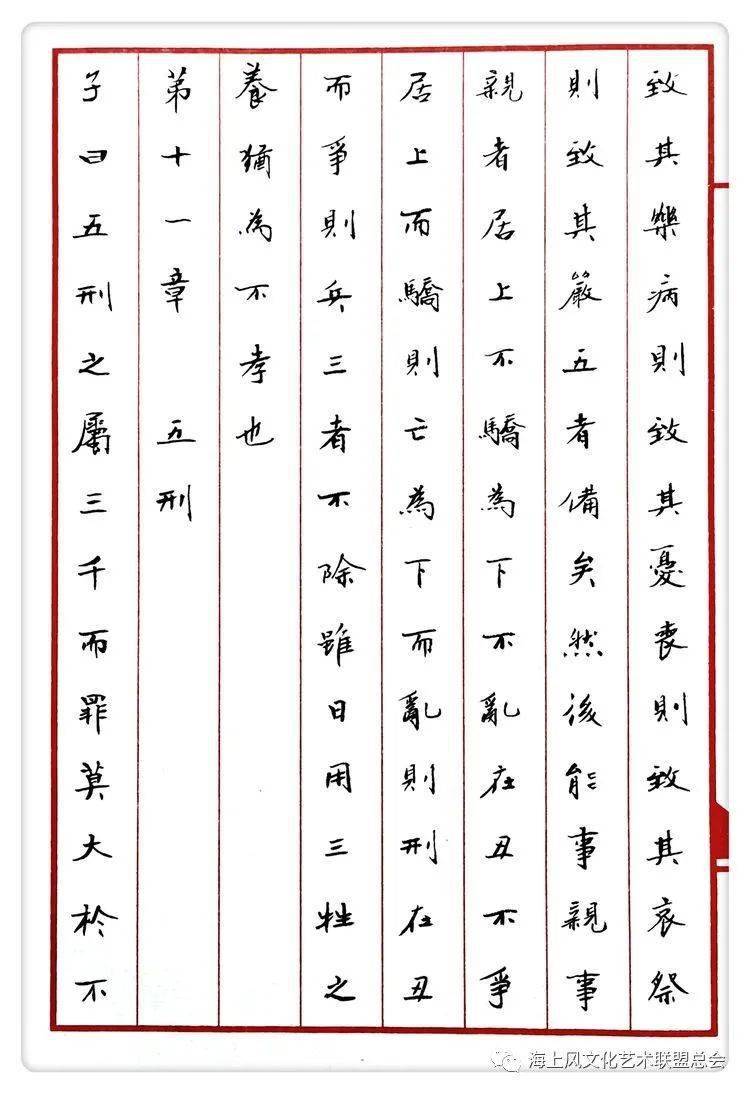 致其樂病則致其憂喪則致其哀祭
則致其嚴五者備矣然後能事親事
親者居上不驕為下不亂在丑不爭
居上而驕則亡為下而亂則刑在丑
而爭則兵三者不除雖日用三牲之
養猶為不孝也
第十一章 五刑
子曰五刑之屬三千而罪莫大於不
海上风文化艺术联盟总会